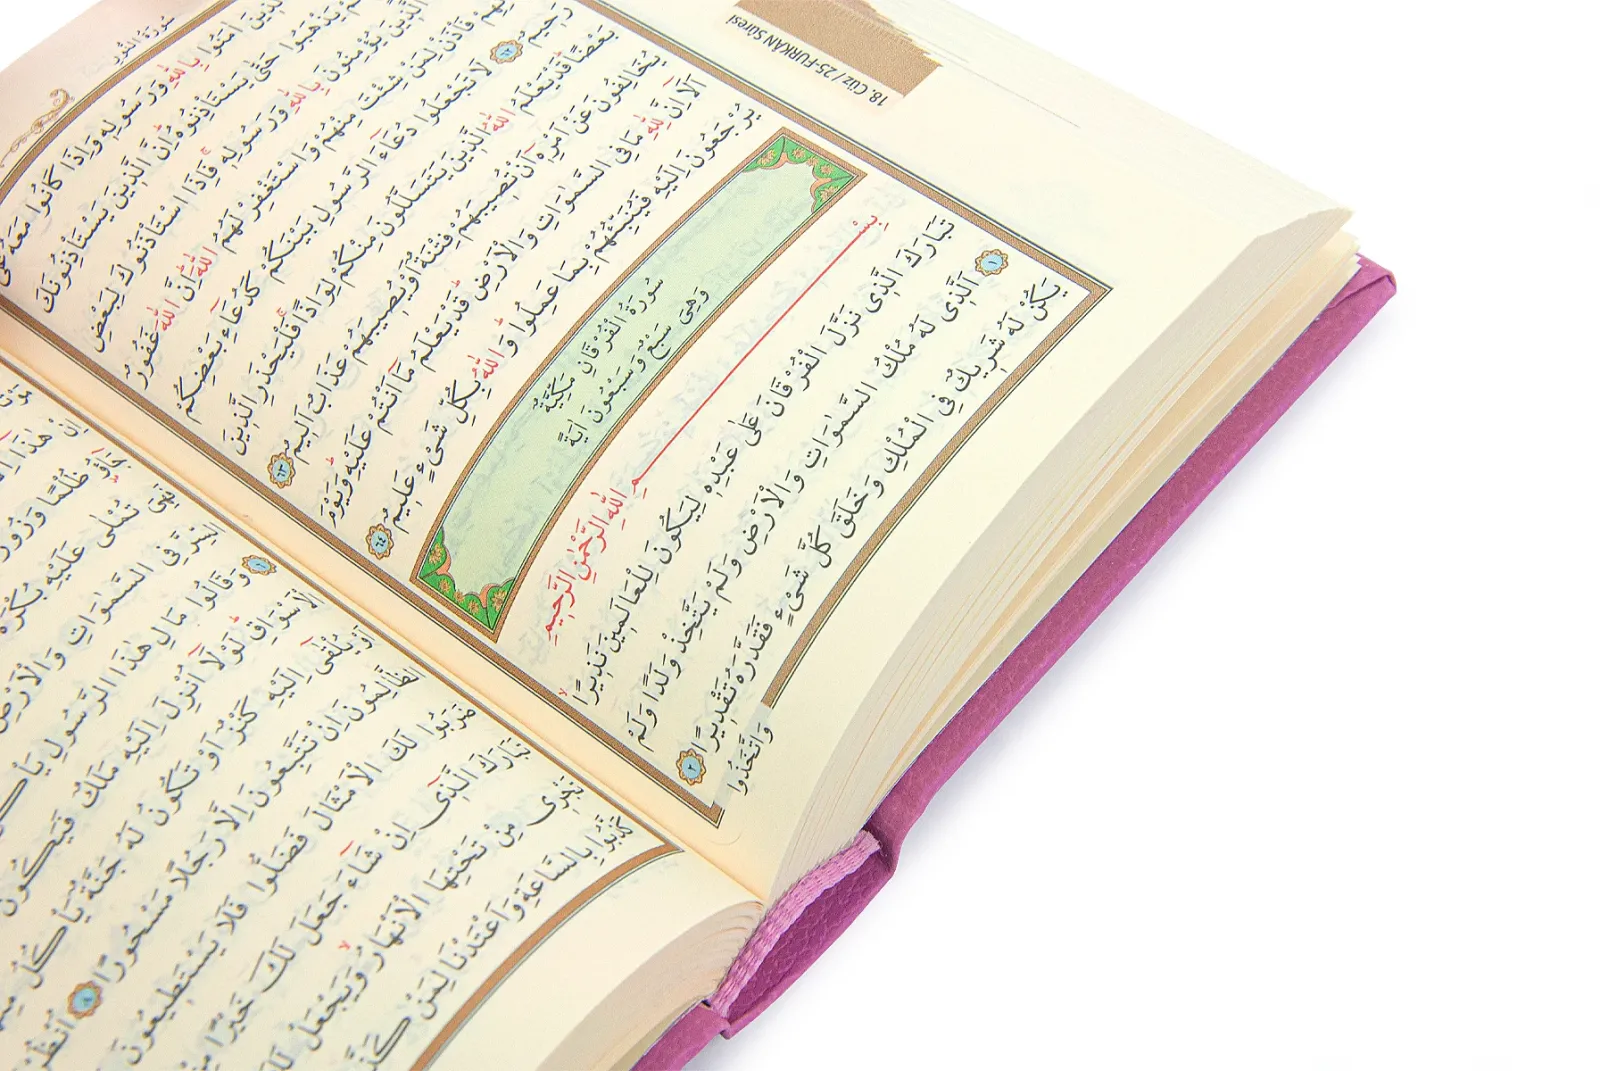 سُورَةُ النُّورِ
18. Cüz / 25-FURKAN Sûresi
الَّذِينَ اٰمَنُوا بِاللّٰهِ وَرَسُولِهِ وَاِذَا كَانُوا مَعَهُ عَلٰى
يَذْهَبُوا حَتّٰى يَسْتَأْذِنُوهُ اِنَّ الَّذِينَ يَسْتَأْذِنُونَكَ
الَّذِينَ يُؤْمِنُونَ بِاللّٰهِ وَرَسُولِهِ فَاِذَا اسْتَأْذَنُوكَ لِبَعْضِ
فَأْذَنْ لِمَنْ شِئْتَ مِنْهُمْ وَاسْتَغْفِرْ لَهُمُ اللّٰهَ اِنَّ اللّٰهَ غَفُورٌ
رَحِيمٌ ٦٢ لَا تَجْعَلُوا دُعَٓاءَ الرَّسُولِ بَيْنَكُمْ كَدُعَٓاءِ بَعْضِكُمْ
بَعْضًا قَدْ يَعْلَمُ اللّٰهُ الَّذِينَ يَتَسَلَّلُونَ مِنْكُمْ لِوَاذًا فَلْيَحْذَرِ الَّذِينَ
يُخَالِفُونَ عَنْ اَمْرِهِٓ اَنْ تُصِيبَهُمْ فِتْنَةٌ اَوْ يُصِيبَهُمْ عَذَابٌ اَلِيمٌ ٦٣
اَلَٓا اِنَّ لِلّٰهِ مَا فِى السَّمٰوَاتِ وَالْاَرْضِ قَدْ يَعْلَمُ مَٓا اَنْتُمْ عَلَيْهِ وَيَوْمَ
يُرْجَعُونَ اِلَيْهِ فَيُنَبِّئُهُمْ بِمَا عَمِلُوا وَاللّٰهُ بِكُلِّ شَىْءٍ عَلِيمٌ ٦٤
سُورَةُ الْفُرْقَانِ مَكِّيَّةٌ
وَهِىَ سَبْعٌ وَسَبْعُونَ اٰيَةً
بِسْمِ اللّٰهِ الرَّحْمٰنِ الرَّحِيمِ
تَبَارَكَ الَّذِى نَزَّلَ الْفُرْقَانَ عَلٰى عَبْدِهِ لِيَكُونَ لِلْعَالَمِينَ نَذِيرًا
١ اَلَّذِى لَهُ مُلْكُ السَّمٰوَاتِ وَالْاَرْضِ وَلَمْ يَتَّخِذْ وَلَدًا وَلَمْ
يَكُنْ لَهُ شَرِيكٌ فِى الْمُلْكِ وَخَلَقَ كُلَّ شَىْءٍ فَقَدَّرَهُ تَقْدِيرًا ٢
وَاتَّخَذُوا
اِنْ هٰذَٓا
ظُلْمًا وَزُورًا
فَهِىَ تُمْلٰى عَلَيْهِ بُكْرَةً
السِّرَّ فِى السَّمٰوَاتِ وَالْاَرْضِ
٦ وَقَالُوا مَالِ هٰذَا الرَّسُولِ
الْاَسْوَاقِ لَوْلَٓا اُنْزِلَ اِلَيْهِ مَلَكٌ فَيَكُونَ
اَوْ يُلْقٰٓى اِلَيْهِ كَنْزٌ اَوْ تَكُونُ لَهُ جَنَّةٌ يَأْكُلُ مِنْهَا
الظَّالِمُونَ اِنْ تَتَّبِعُونَ اِلَّا رَجُلًا مَسْحُورًا ٨ اُنْظُرْ
ضَرَبُوا لَكَ الْاَمْثَالَ فَضَلُّوا فَلَا يَسْتَطِيعُونَ
تَبَارَكَ الَّذِٓى اِنْ شَٓاءَ جَعَلَ لَكَ خَيْرًا مِنْ
تَجْرِى مِنْ تَحْتِهَا الْاَنْهَارُ وَيَجْعَلْ
كَذَّبُوا بِالسَّاعَةِ وَاَعْتَدْنَا لِمَنْ